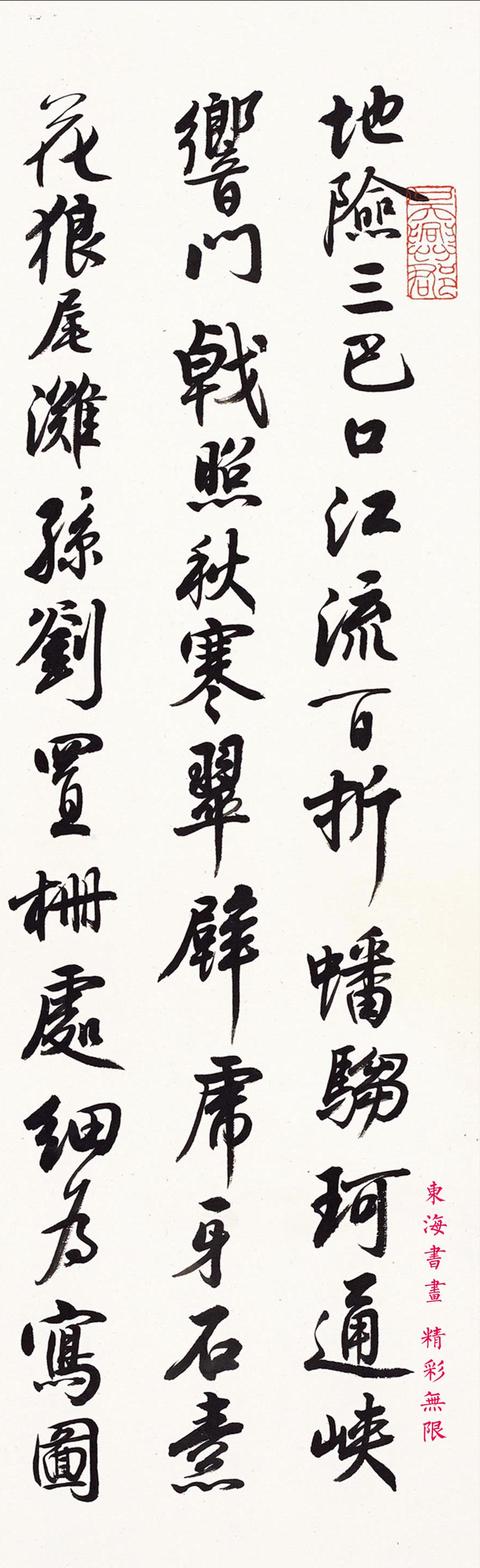 地險三巴口江流百折蟠騶珂通峽
響門戟照秋寒翠壁虎牙石素
花狼尾灘孫劉置柵處細為寫圖
東海書畫 精彩無限